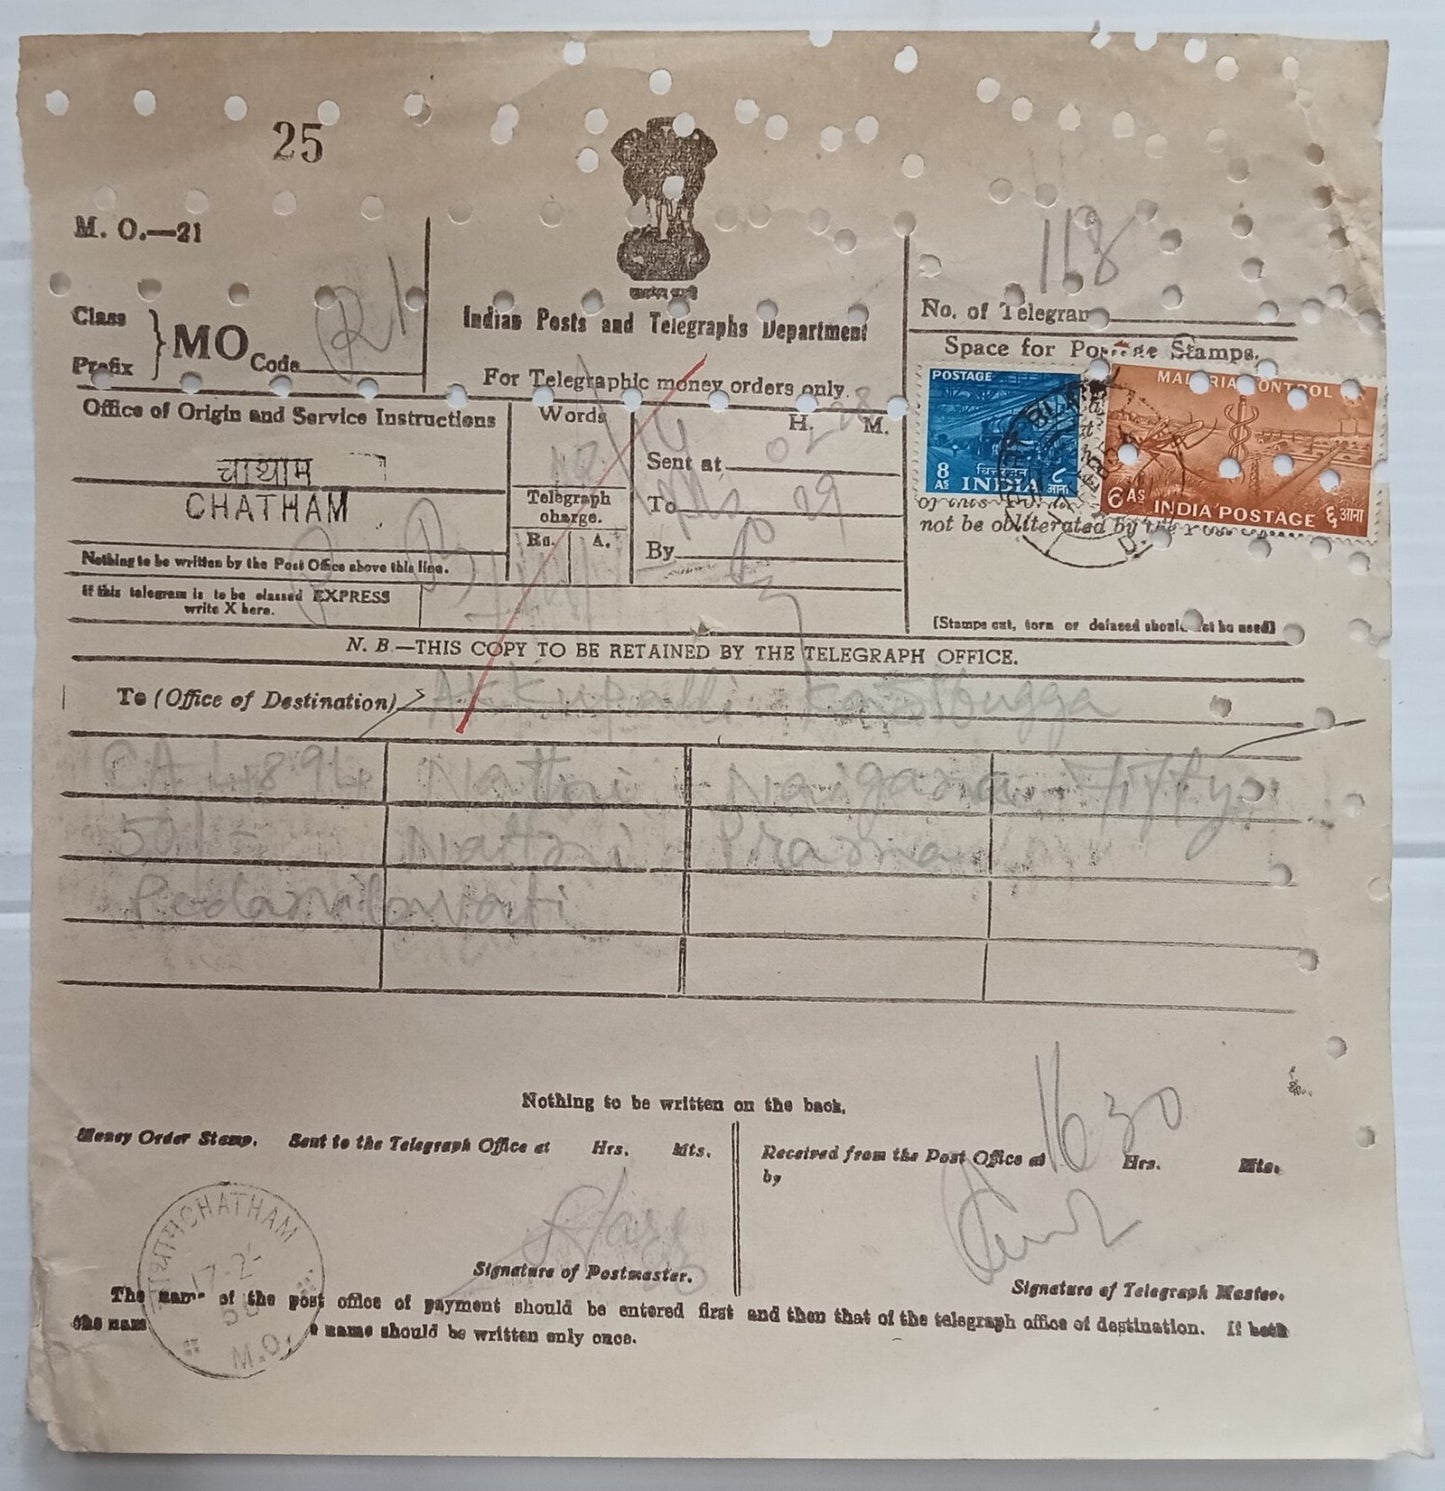 25
M. O.—21
118
No. of Telegram
Class
Prefix
MO
Code
Indian Posts and Telegraphs Department
Space for Postage Stamps.
For Telegraphic money orders only.
POSTAGE
8 AS
INDIA ८ आना
MALARIA CONTROL
6 AS INDIA POSTAGE ६ आना
not be obliterated by the
Office of Origin and Service Instructions
Words
H. M.
चाथाम
CHATHAM
Sent at
Telegraph charge.
To
Rs. A.
By
Nothing to be written by the Post Office above this line.
If this telegram is to be classed EXPRESS
write X here.
[Stamps cut, torn or defaced should not be used]
N. B.—THIS COPY TO BE RETAINED BY THE TELEGRAPH OFFICE.
To (Office of Destination) Akkupalli Kasibugga
CA 4894 Nattni Naigana Fifty
50/- Nattni
Nothing to be written on the back.
1630
Money Order Stamp. Sent to the Telegraph Office at Hrs. Mts.
Received from the Post Office at Hrs. Mts.
by
चाथाम CHATHAM
17-2-
M.O.
Signature of Postmaster.
Signature of Telegraph Master.
The name of the post office of payment should be entered first and then that of the telegraph office of destination. If both
the nam e name should be written only once.